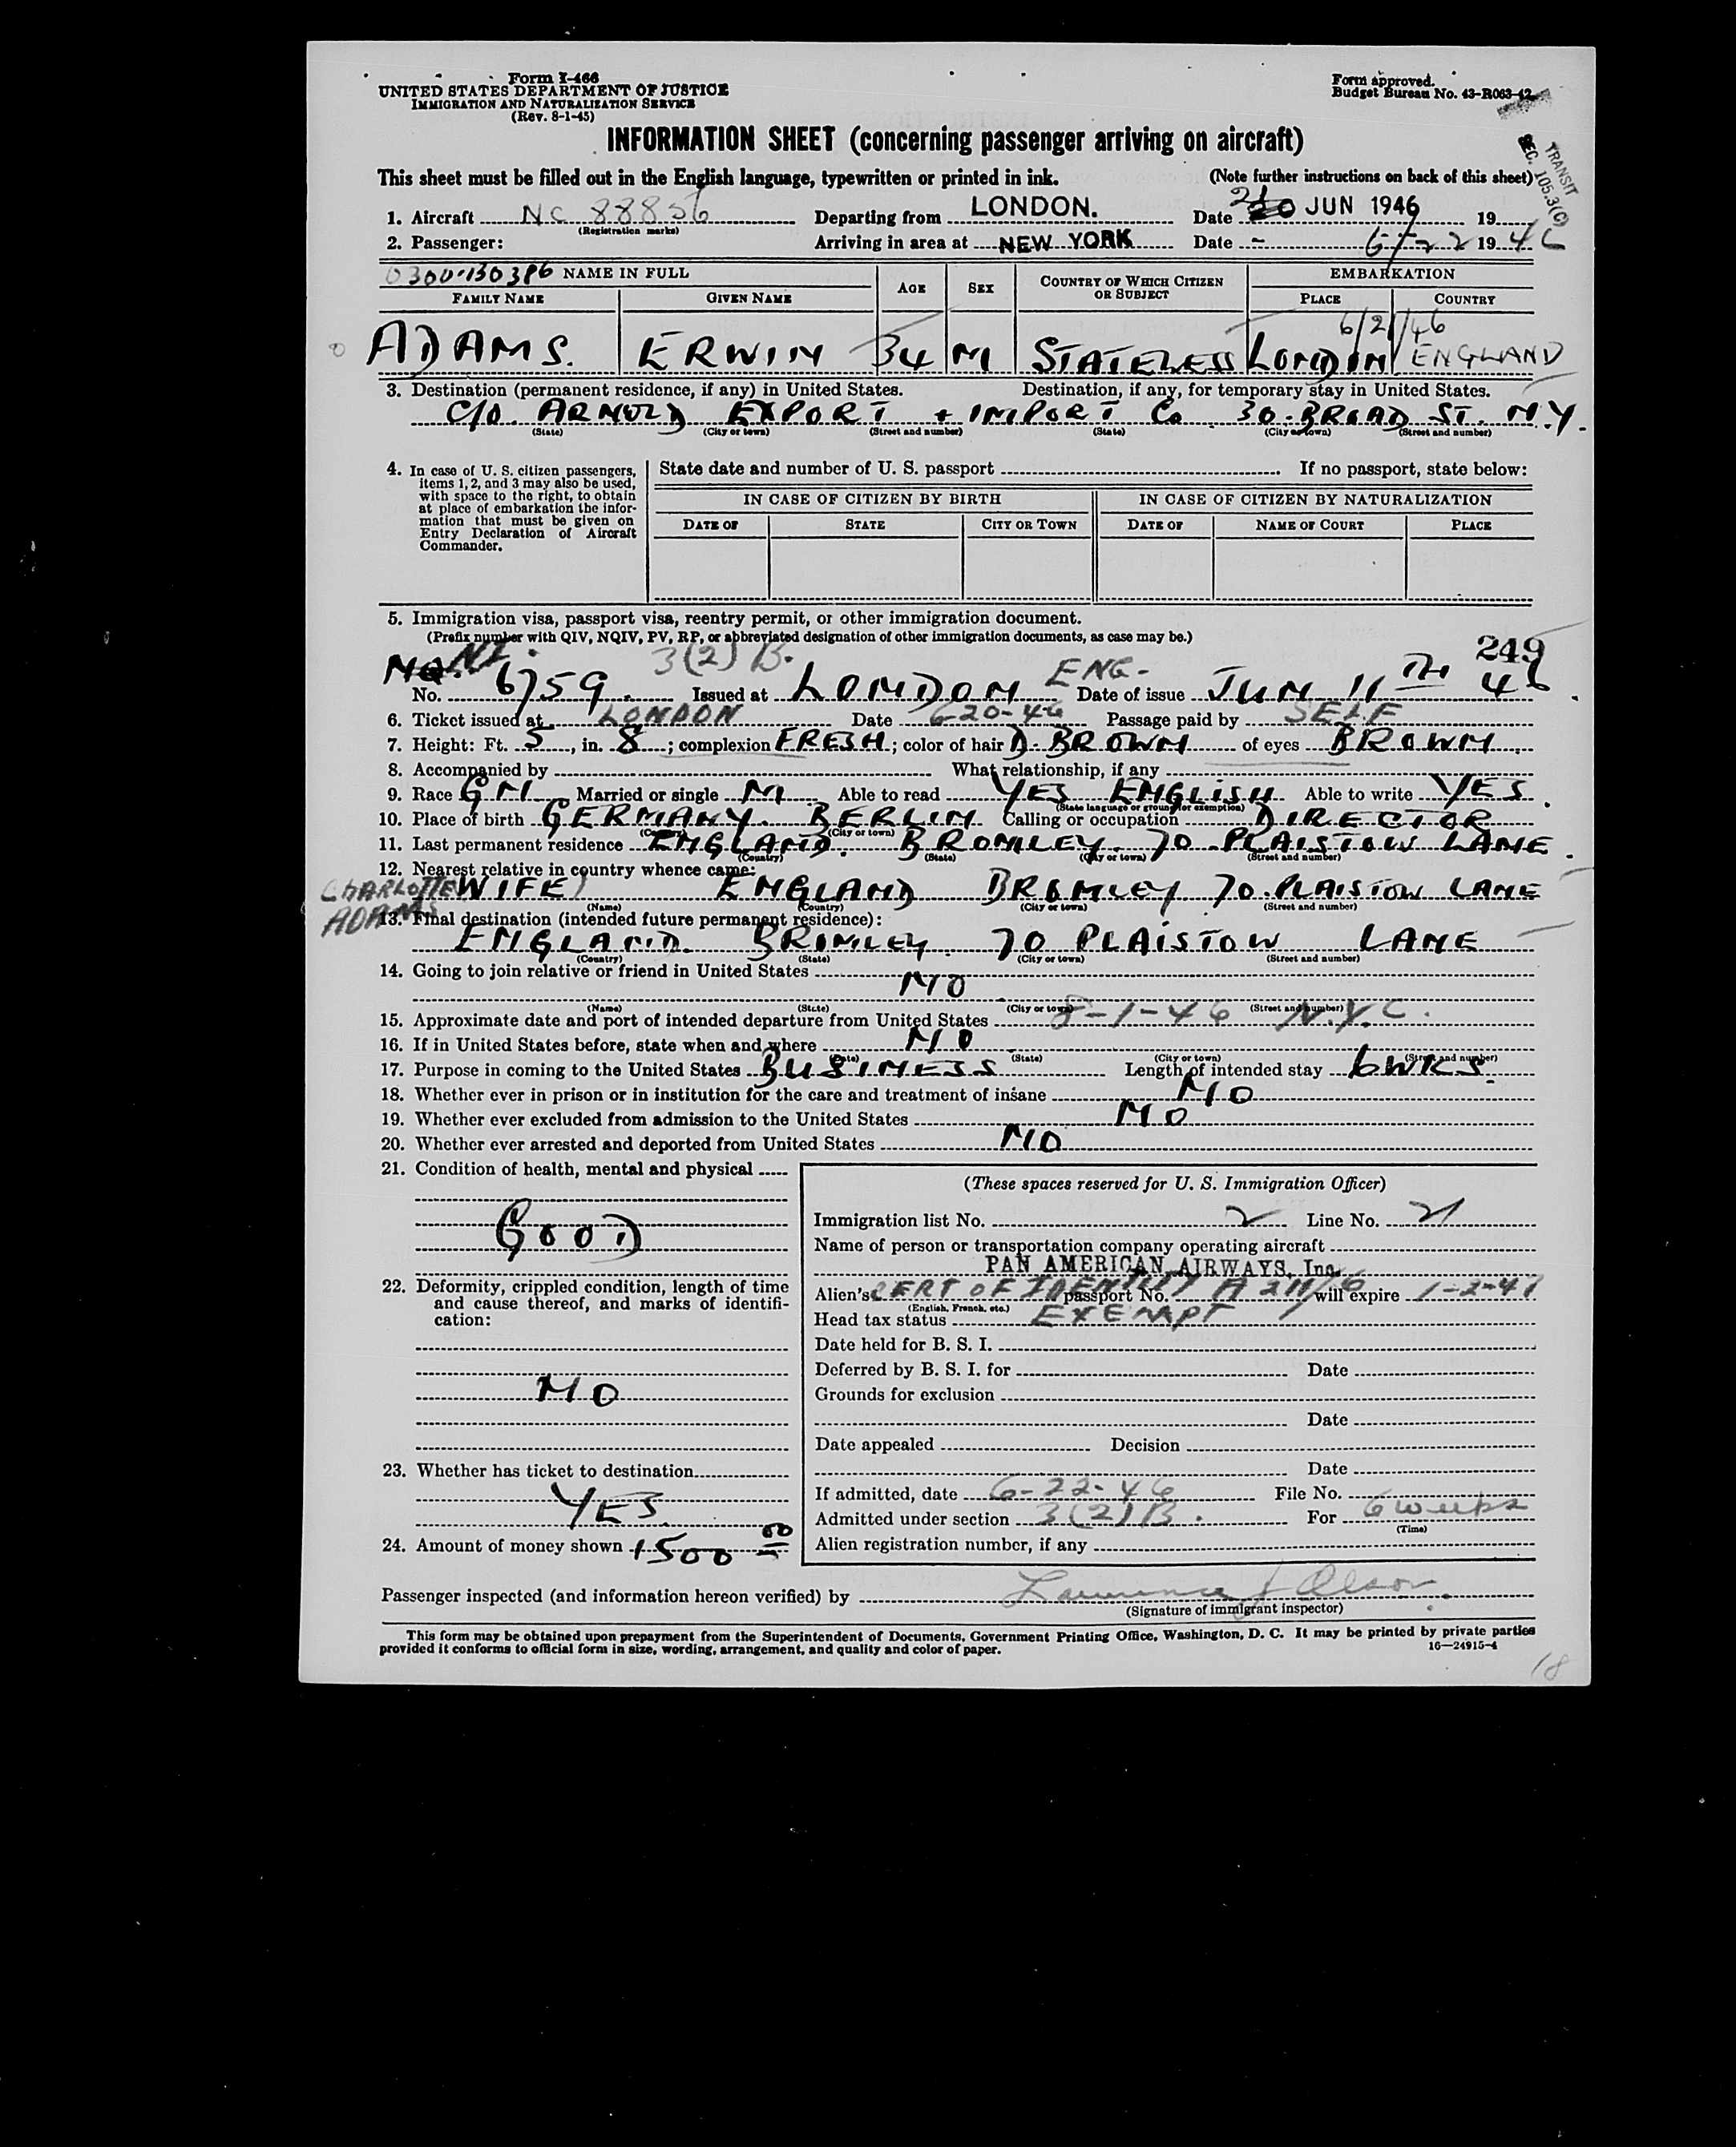 Form I-466
UNITED STATES DEPARTMENT OF JUSTICE
IMMIGRATION AND NATURALIZATION SERVICE
(Rev. 8-1-45)
Form approved.
Budget Bureau No. 43-R063-42
TRANSIT
SEC. 105.3(C)
INFORMATION SHEET (concerning passenger arriving on aircraft)
This sheet must be filled out in the English language, typewritten or printed in ink. (Note further instructions on back of this sheet)
1. Aircraft NC 88856 Departing from LONDON. Date 21 JUN 1946 19
(Registration marks)
2. Passenger: Arriving in area at NEW YORK Date 6/22 1946
0300-130386 NAME IN FULL AGE SEX COUNTRY OF WHICH CITIZEN OR SUBJECT EMBARKATION
FAMILY NAME GIVEN NAME PLACE COUNTRY
6/21/46
ADAMS. ERWIN 34 M STATELESS LONDON ENGLAND
3. Destination (permanent residence, if any) in United States. Destination, if any, for temporary stay in United States.
C/O. ARNOLD EXPORT + IMPORT Co 30. BROAD ST. N.Y.
(State) (City or town) (Street and number) (State) (City or town) (Street and number)
4. In case of U. S. citizen passengers, items 1, 2, and 3 may also be used, with space to the right, to obtain at place of embarkation the information that must be given on Entry Declaration of Aircraft Commander.
State date and number of U. S. passport If no passport, state below:
IN CASE OF CITIZEN BY BIRTH IN CASE OF CITIZEN BY NATURALIZATION
DATE OF STATE CITY OR TOWN DATE OF NAME OF COURT PLACE
5. Immigration visa, passport visa, reentry permit, or other immigration document.
(Prefix number with QIV, NQIV, PV, RP, or abbreviated designation of other immigration documents, as case may be.)
249
NI. 3(2) B. ENG-
No. 6759 Issued at LONDON Date of issue JUN 11TH 46.
6. Ticket issued at LONDON Date 6-20-46 Passage paid by SELF
7. Height: Ft. 5, in. 8; complexion FRESH; color of hair D. BROWN of eyes BROWN
8. Accompanied by What relationship, if any
9. Race GM Married or single M Able to read YES ENGLISH Able to write YES.
(State language or ground for exemption)
10. Place of birth GERMANY. BERLIN Calling or occupation DIRECTOR
(Country) (City or town)
11. Last permanent residence ENGLAND. BROMLEY. 70 PLAISTOW LANE.
(Country) (State) (City or town) (Street and number)
12. Nearest relative in country whence came:
CHARLOTTE ADAMS WIFE) ENGLAND BROMLEY 70. PLAISTOW LANE
(Name) (Country) (City or town) (Street and number)
13. Final destination (intended future permanent residence):
ENGLAND. BROMLEY. 70 PLAISTOW LANE
(Country) (State) (City or town) (Street and number)
14. Going to join relative or friend in United States
NO
(Name) (State) (City or town) (Street and number)
15. Approximate date and port of intended departure from United States 8-1-46 N.Y.C.
16. If in United States before, state when and where NO
(Date) (State) (City or town) (Street and number)
17. Purpose in coming to the United States BUSINESS Length of intended stay 6 WKS.
18. Whether ever in prison or in institution for the care and treatment of insane NO
19. Whether ever excluded from admission to the United States NO
20. Whether ever arrested and deported from United States NO
21. Condition of health, mental and physical
GOOD
22. Deformity, crippled condition, length of time and cause thereof, and marks of identification:
NO
23. Whether has ticket to destination
YES.
24. Amount of money shown 1500 00
(These spaces reserved for U. S. Immigration Officer)
Immigration list No. 2 Line No. 21
Name of person or transportation company operating aircraft
PAN AMERICAN AIRWAYS, Inc.
Alien's CERT OF IDENTITY passport No. A 21116 will expire 1-2-47
(English, French, etc.)
Head tax status EXEMPT
Date held for B. S. I.
Deferred by B. S. I. for Date
Grounds for exclusion
Date
Date appealed Decision
Date
If admitted, date 6-22-46 File No.
Admitted under section 3(2)B. For 6 weeks
(Time)
Alien registration number, if any
Passenger inspected (and information hereon verified) by Lawrence J Olson
(Signature of immigrant inspector)
This form may be obtained upon prepayment from the Superintendent of Documents, Government Printing Office, Washington, D. C. It may be printed by private parties
provided it conforms to official form in size, wording, arrangement, and quality and color of paper. 16—24915-4
18